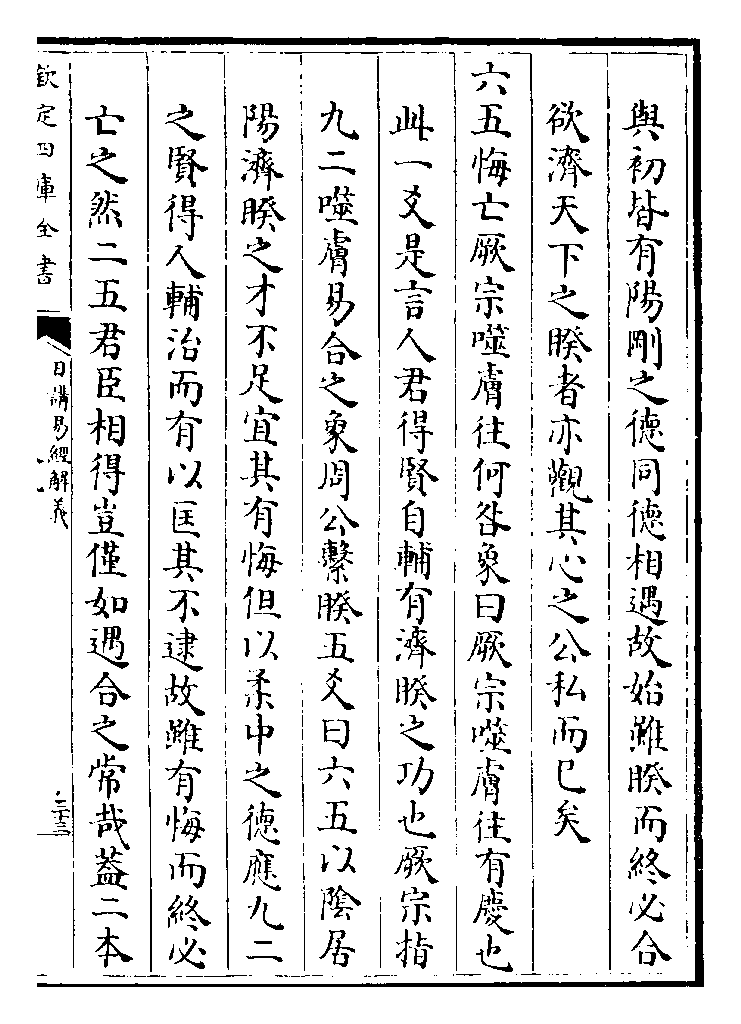 與初皆有陽剛之德同德相遇故始雖睽而終必合
欲濟天下之睽者亦觀其心之公私而已矣
六五悔亡厥宗噬膚往何咎象曰厥宗噬膚往有慶也
此一爻是言人君得賢自輔有濟睽之功也厥宗指
九二噬膚易合之象周公繫睽五爻曰六五以陰居
陽濟睽之才不足宜其有悔但以柔中之德應九二
之賢得人輔治而有以匡其不逮故雖有悔而終必
亡之然二五君臣相得豈僅如遇合之常哉蓋二本
欽定四庫全書
日講易經解義
三十三